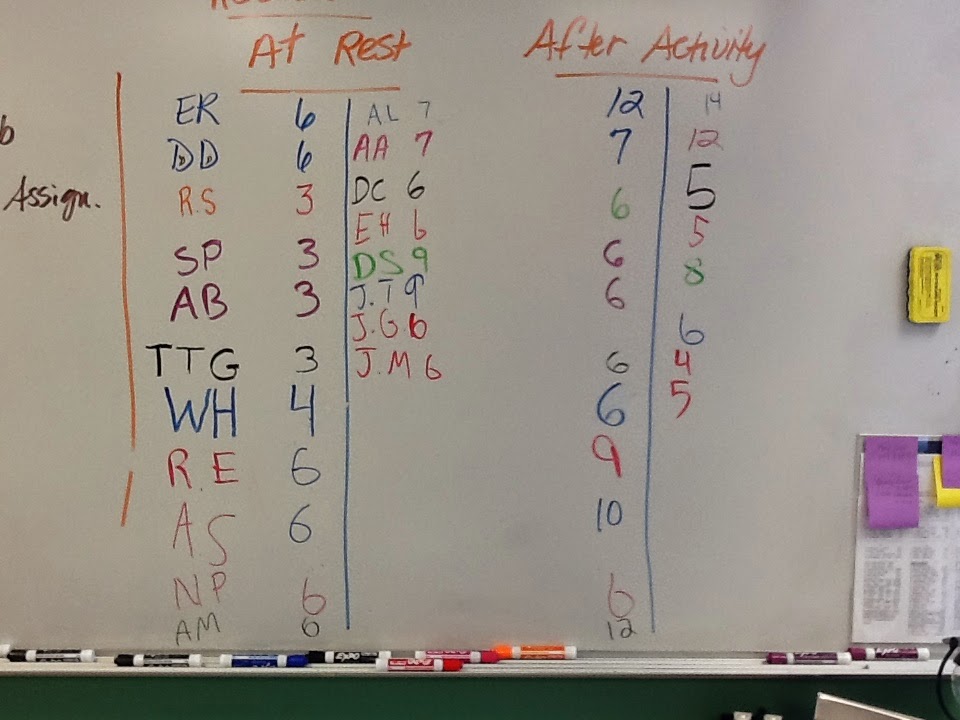 At Rest After Activity
ER 6 AL 7 12 14
DD 6 AA 7 7 12
Assign. R.S 3 DC 6 6 5
EH 6 5
SP 3 DS 9 6 8
AB 3 J.T 9 6
J.G. 6 6
TTG 3 J.M 6 6 4
WH 4 6 5
R.E 6 9
A.S 6 10
NP 6 6
AM 6 12